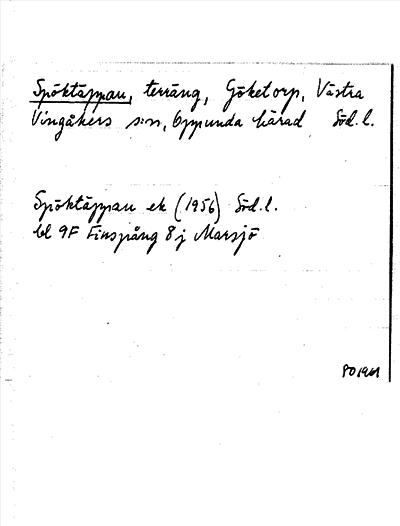 Spöktäppan, terräng, Göketorp, Västra
Vingåkers s:n, Oppunda härad Söd.l.
Spöktäppan ek (1956) Söd.l.
bl 9F Finspång 8j Marsjö
PO 1961